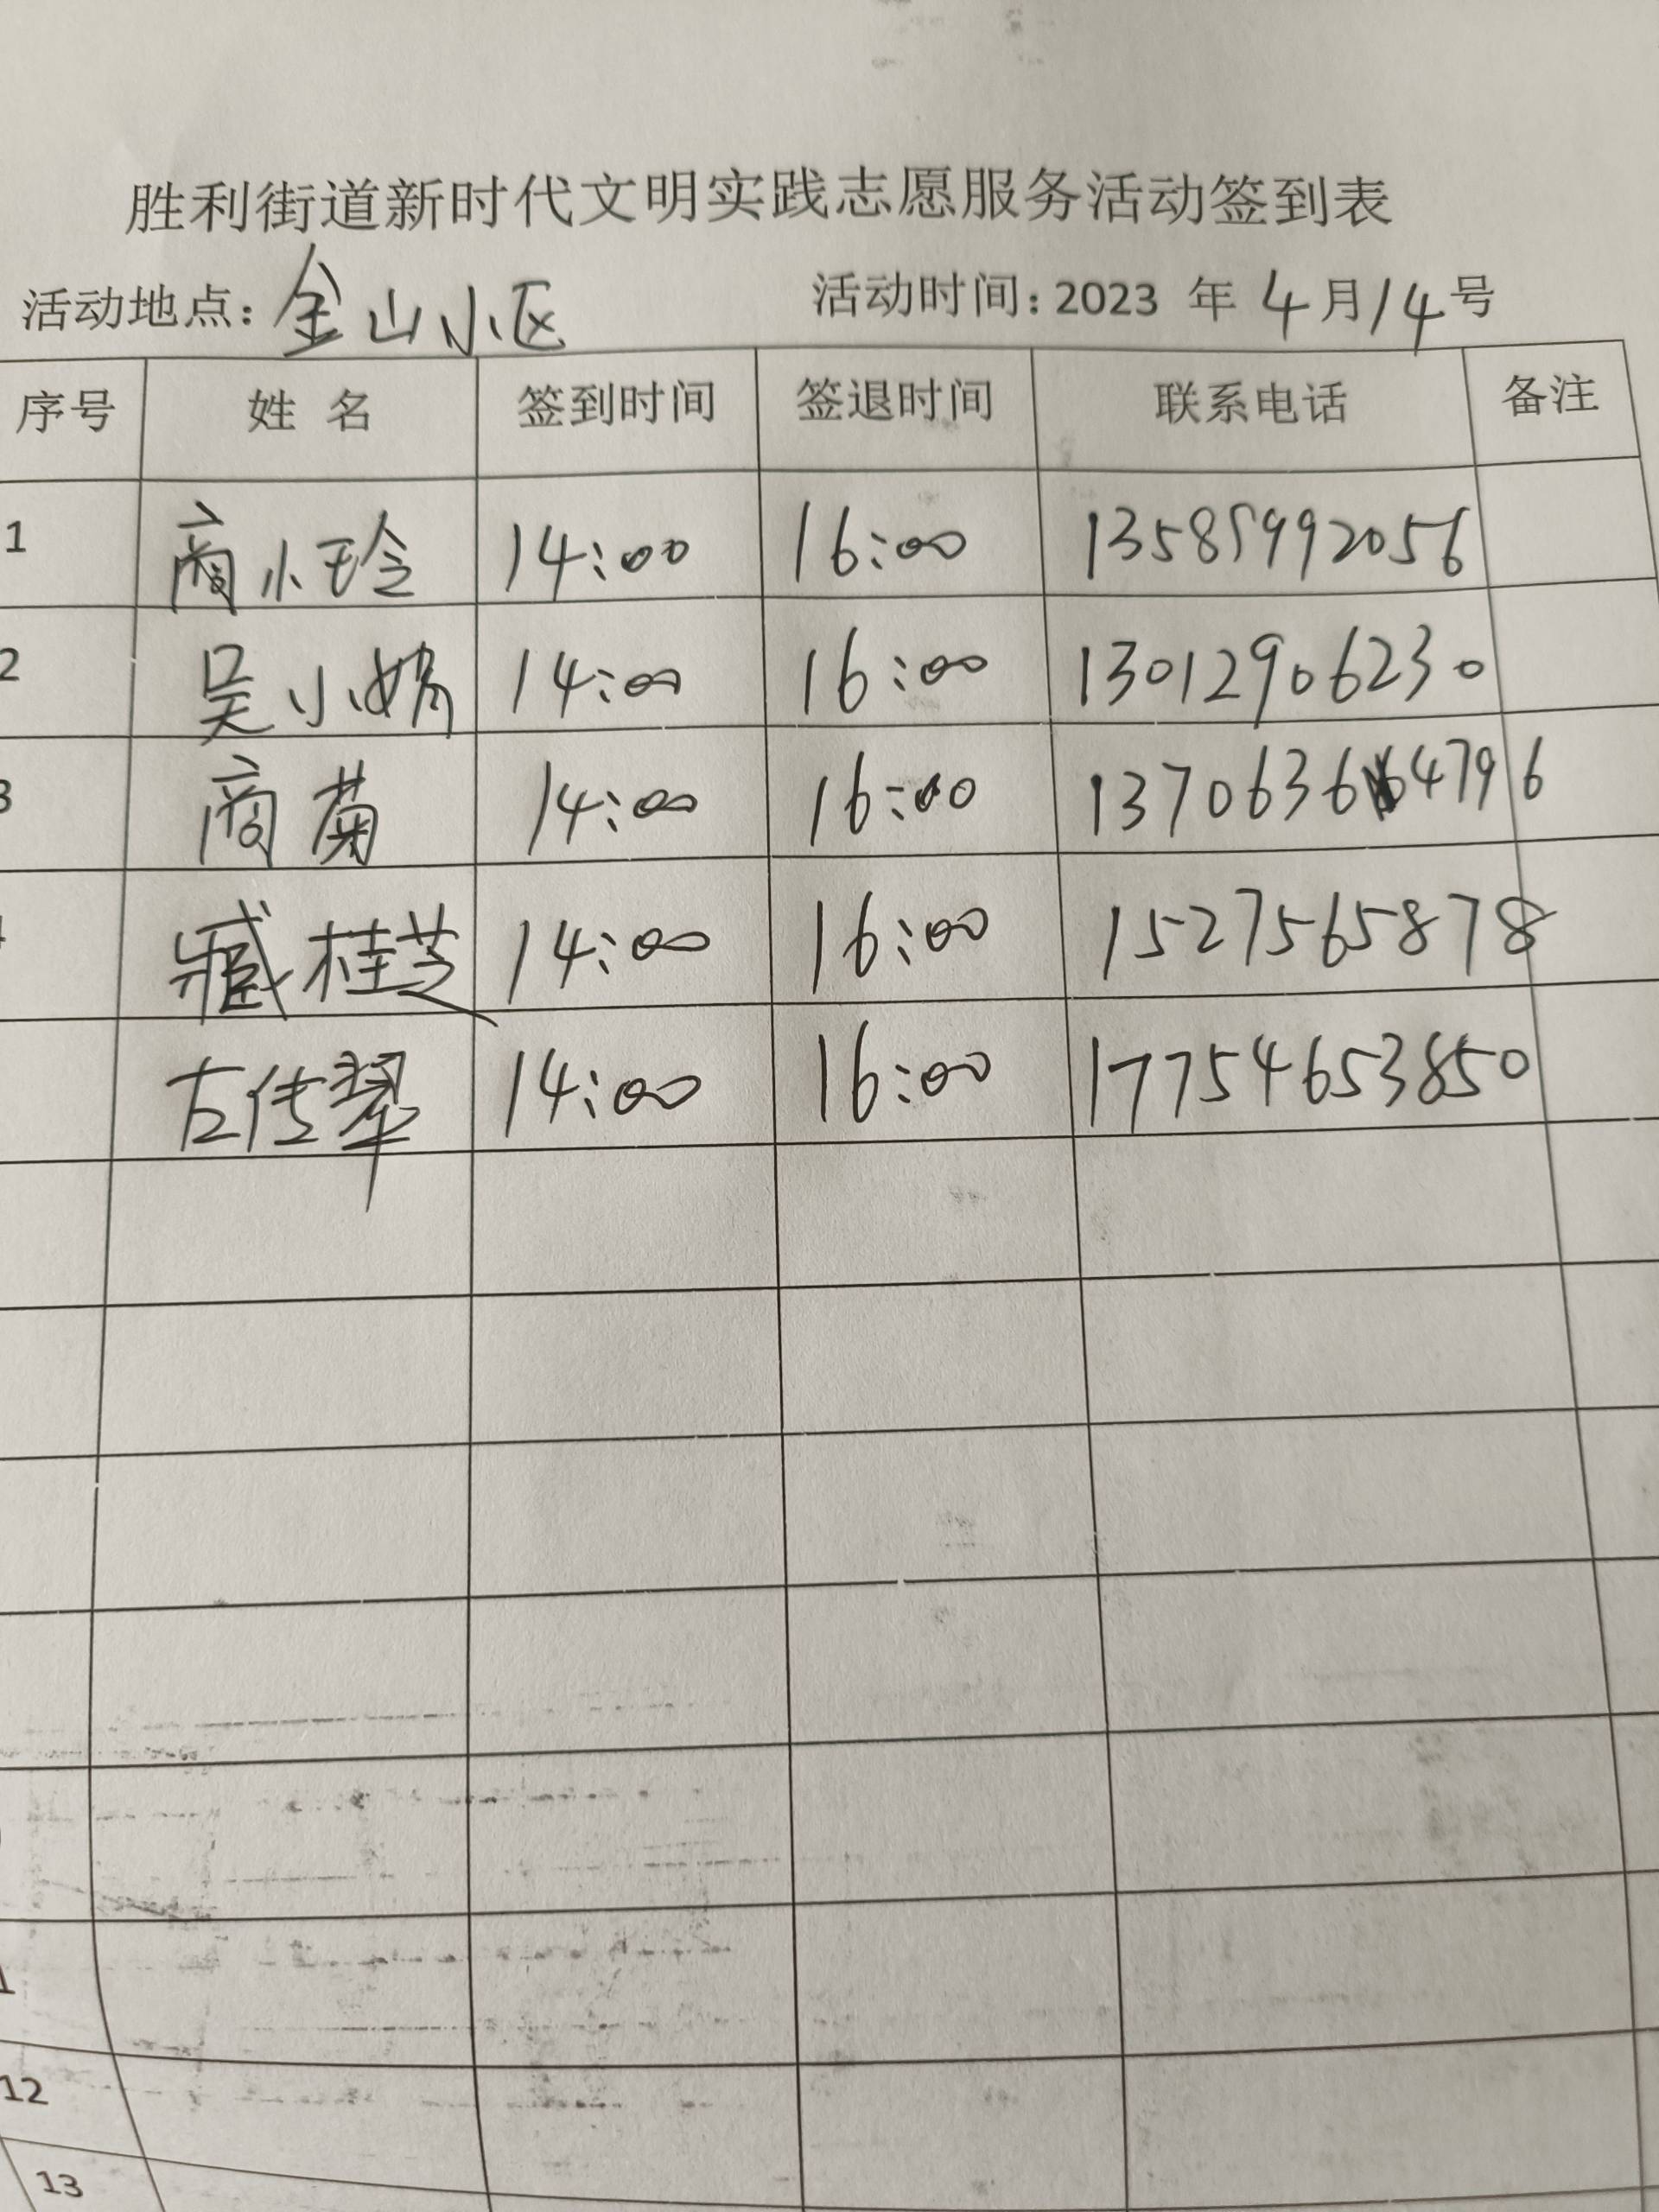 胜利街道新时代文明实践志愿服务活动签到表
活动地点：金山小区 活动时间：2023 年 4月14号
序号 姓 名 签到时间 签退时间 联系电话 备注
1 商小玲 14:00 16:00 13585992056
2 吴小娟 14:00 16:00 13012906230
3 商菊 14:00 16:00 13706364796
臧桂芝 14:00 16:00 1527565878
左传翠 14:00 16:00 17754653850
12
13